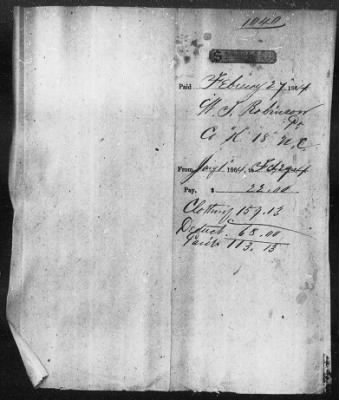 1040
$
Paid February 27 1864
W. S. Robinson
Pvt
Co "K" 18" N.C.
From Jany 1 1864, to Feb 29 64
Pay, $ 22.00
Clothing 159.13
Deduct. 68.00
Paid. 113.13